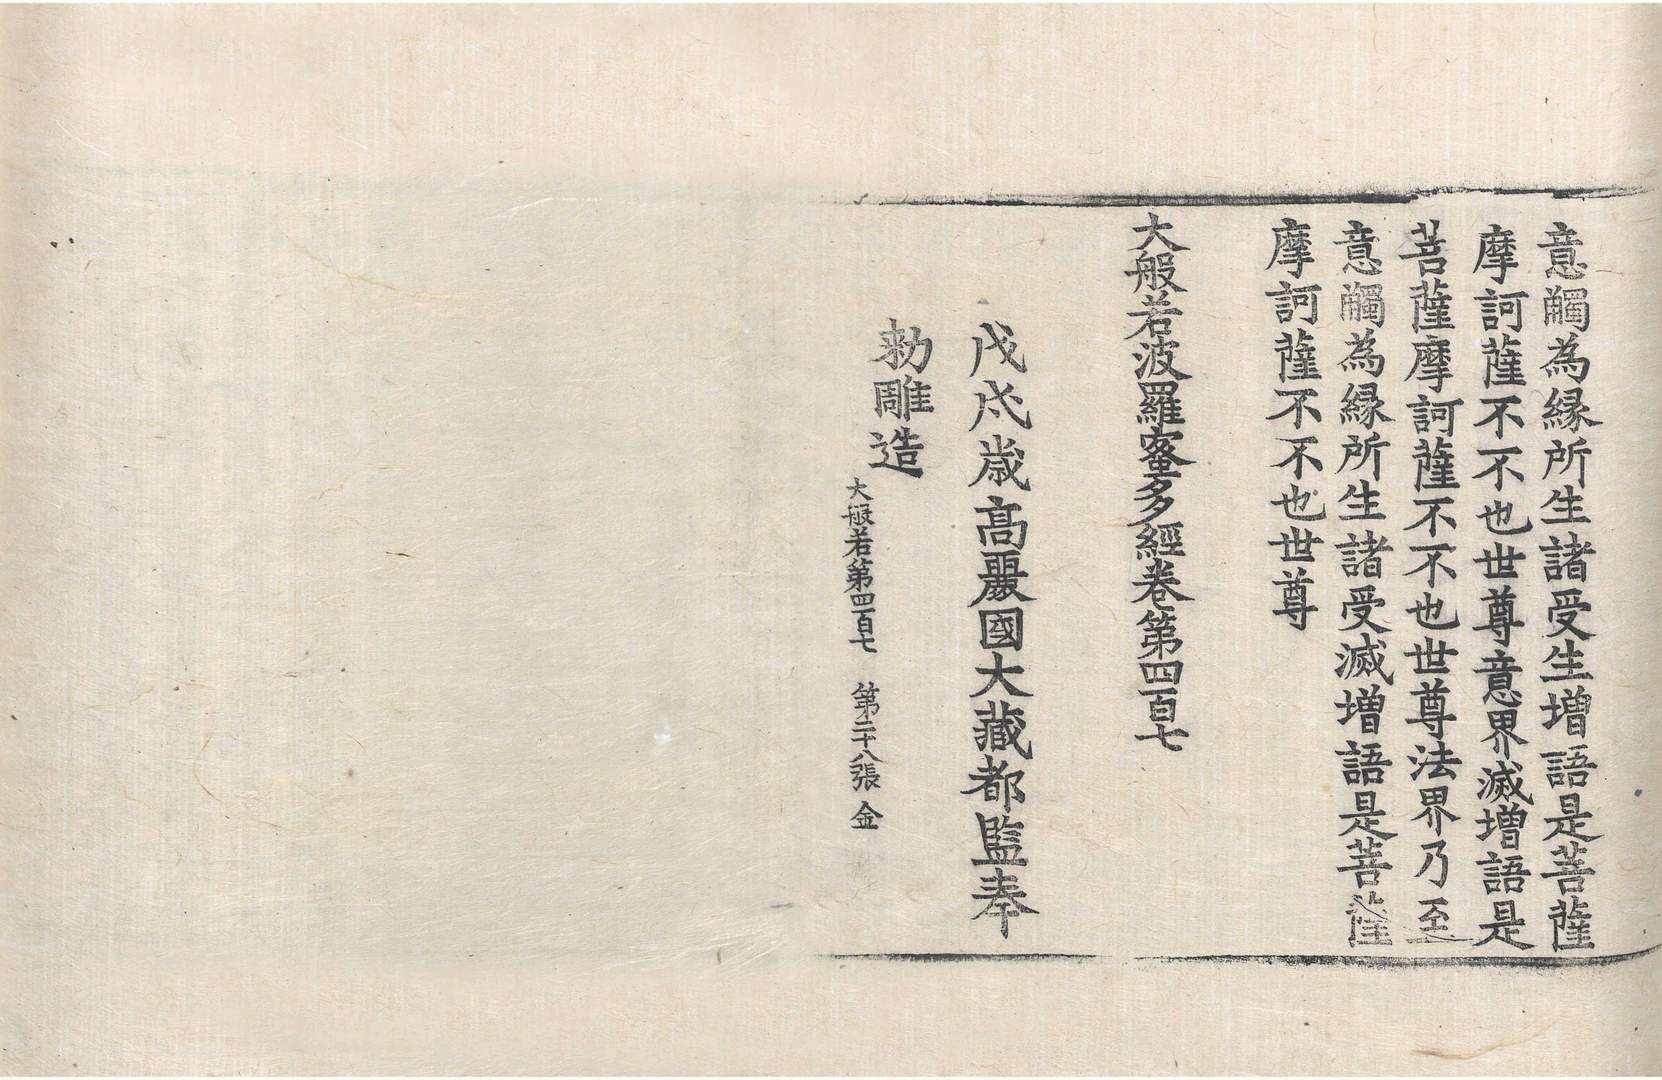 意觸為縁所生諸受生增語是菩薩
摩訶薩不不也世尊意界滅增語是
菩薩摩訶薩不不也世尊法界乃至
意觸為縁所生諸受滅增語是菩薩
摩訶薩不不也世尊
大般若波羅蜜多經卷第四百七
戊戌歲高麗國大藏都監奉
勅雕造
大般若第四百七　第二十八張　金